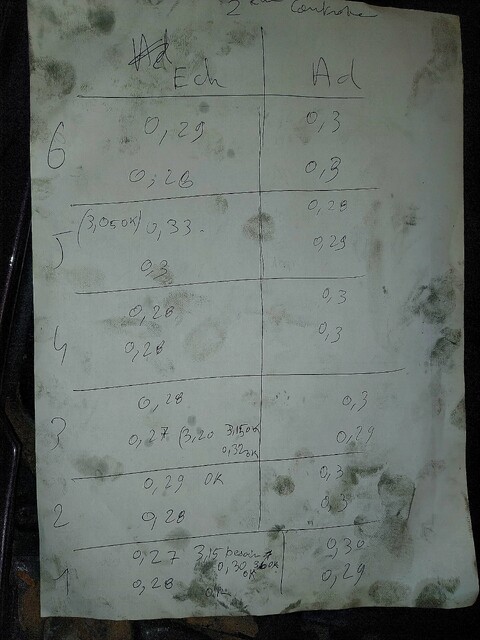 2 Controle
Ad
Ech Ad
6 0,29 0,3
0,28 0,3
5 (3,05 OK) 0,33 0,28
0,29
0,3
4 0,28 0,3
0,28 0,3
3 0,28 0,3
0,27 (3,20 3,15 OK 0,29
0,32 OK
2 0,29 OK 0,3
0,28 0,3
1 0,27 3,15 0,30
0,30 OK
0,28 0,29
OK